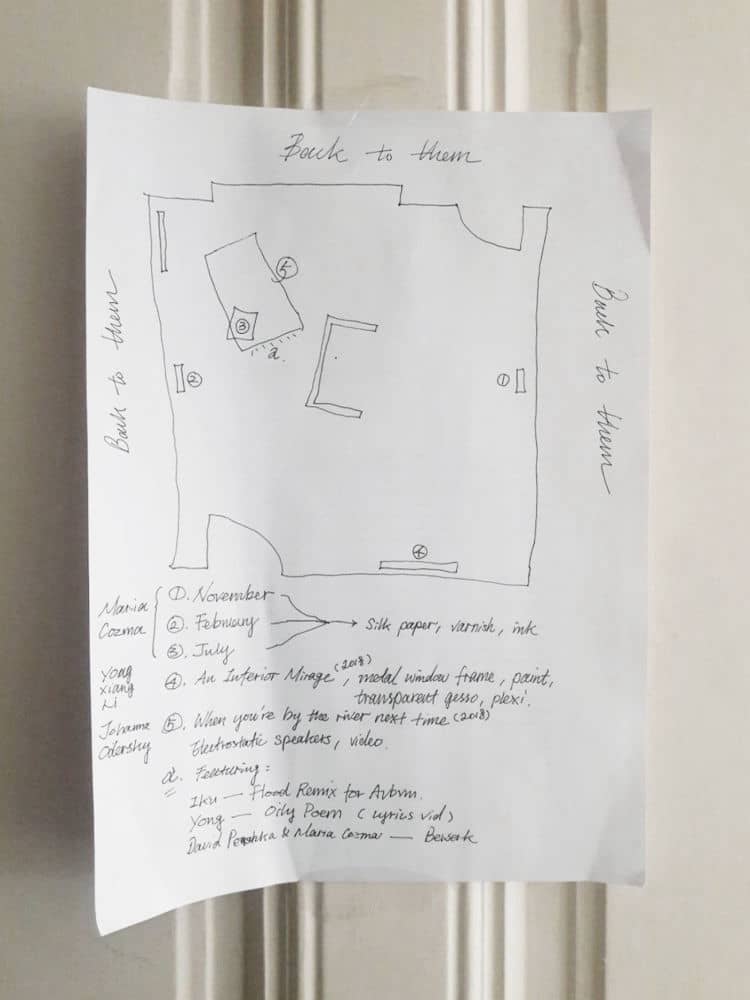 Back to them
Back to them
Back to them
⑤
③
a.
②
①
④
Maria Cozma
①. November
②. February
③. July
→ Silk paper, varnish, ink
Yong Xiang Li
④. An Interior Mirage (2018), metal window frame, paint,
transparent gesso, plexi.
Johanna Odersky
⑤. When you're by the river next time (2018)
Electrostatic speakers, video.
a. Featuring:
Iku — Flood Remix for
Yong — Oily Poem (Lyrics vid)
David & Maria Cozma — Berserk